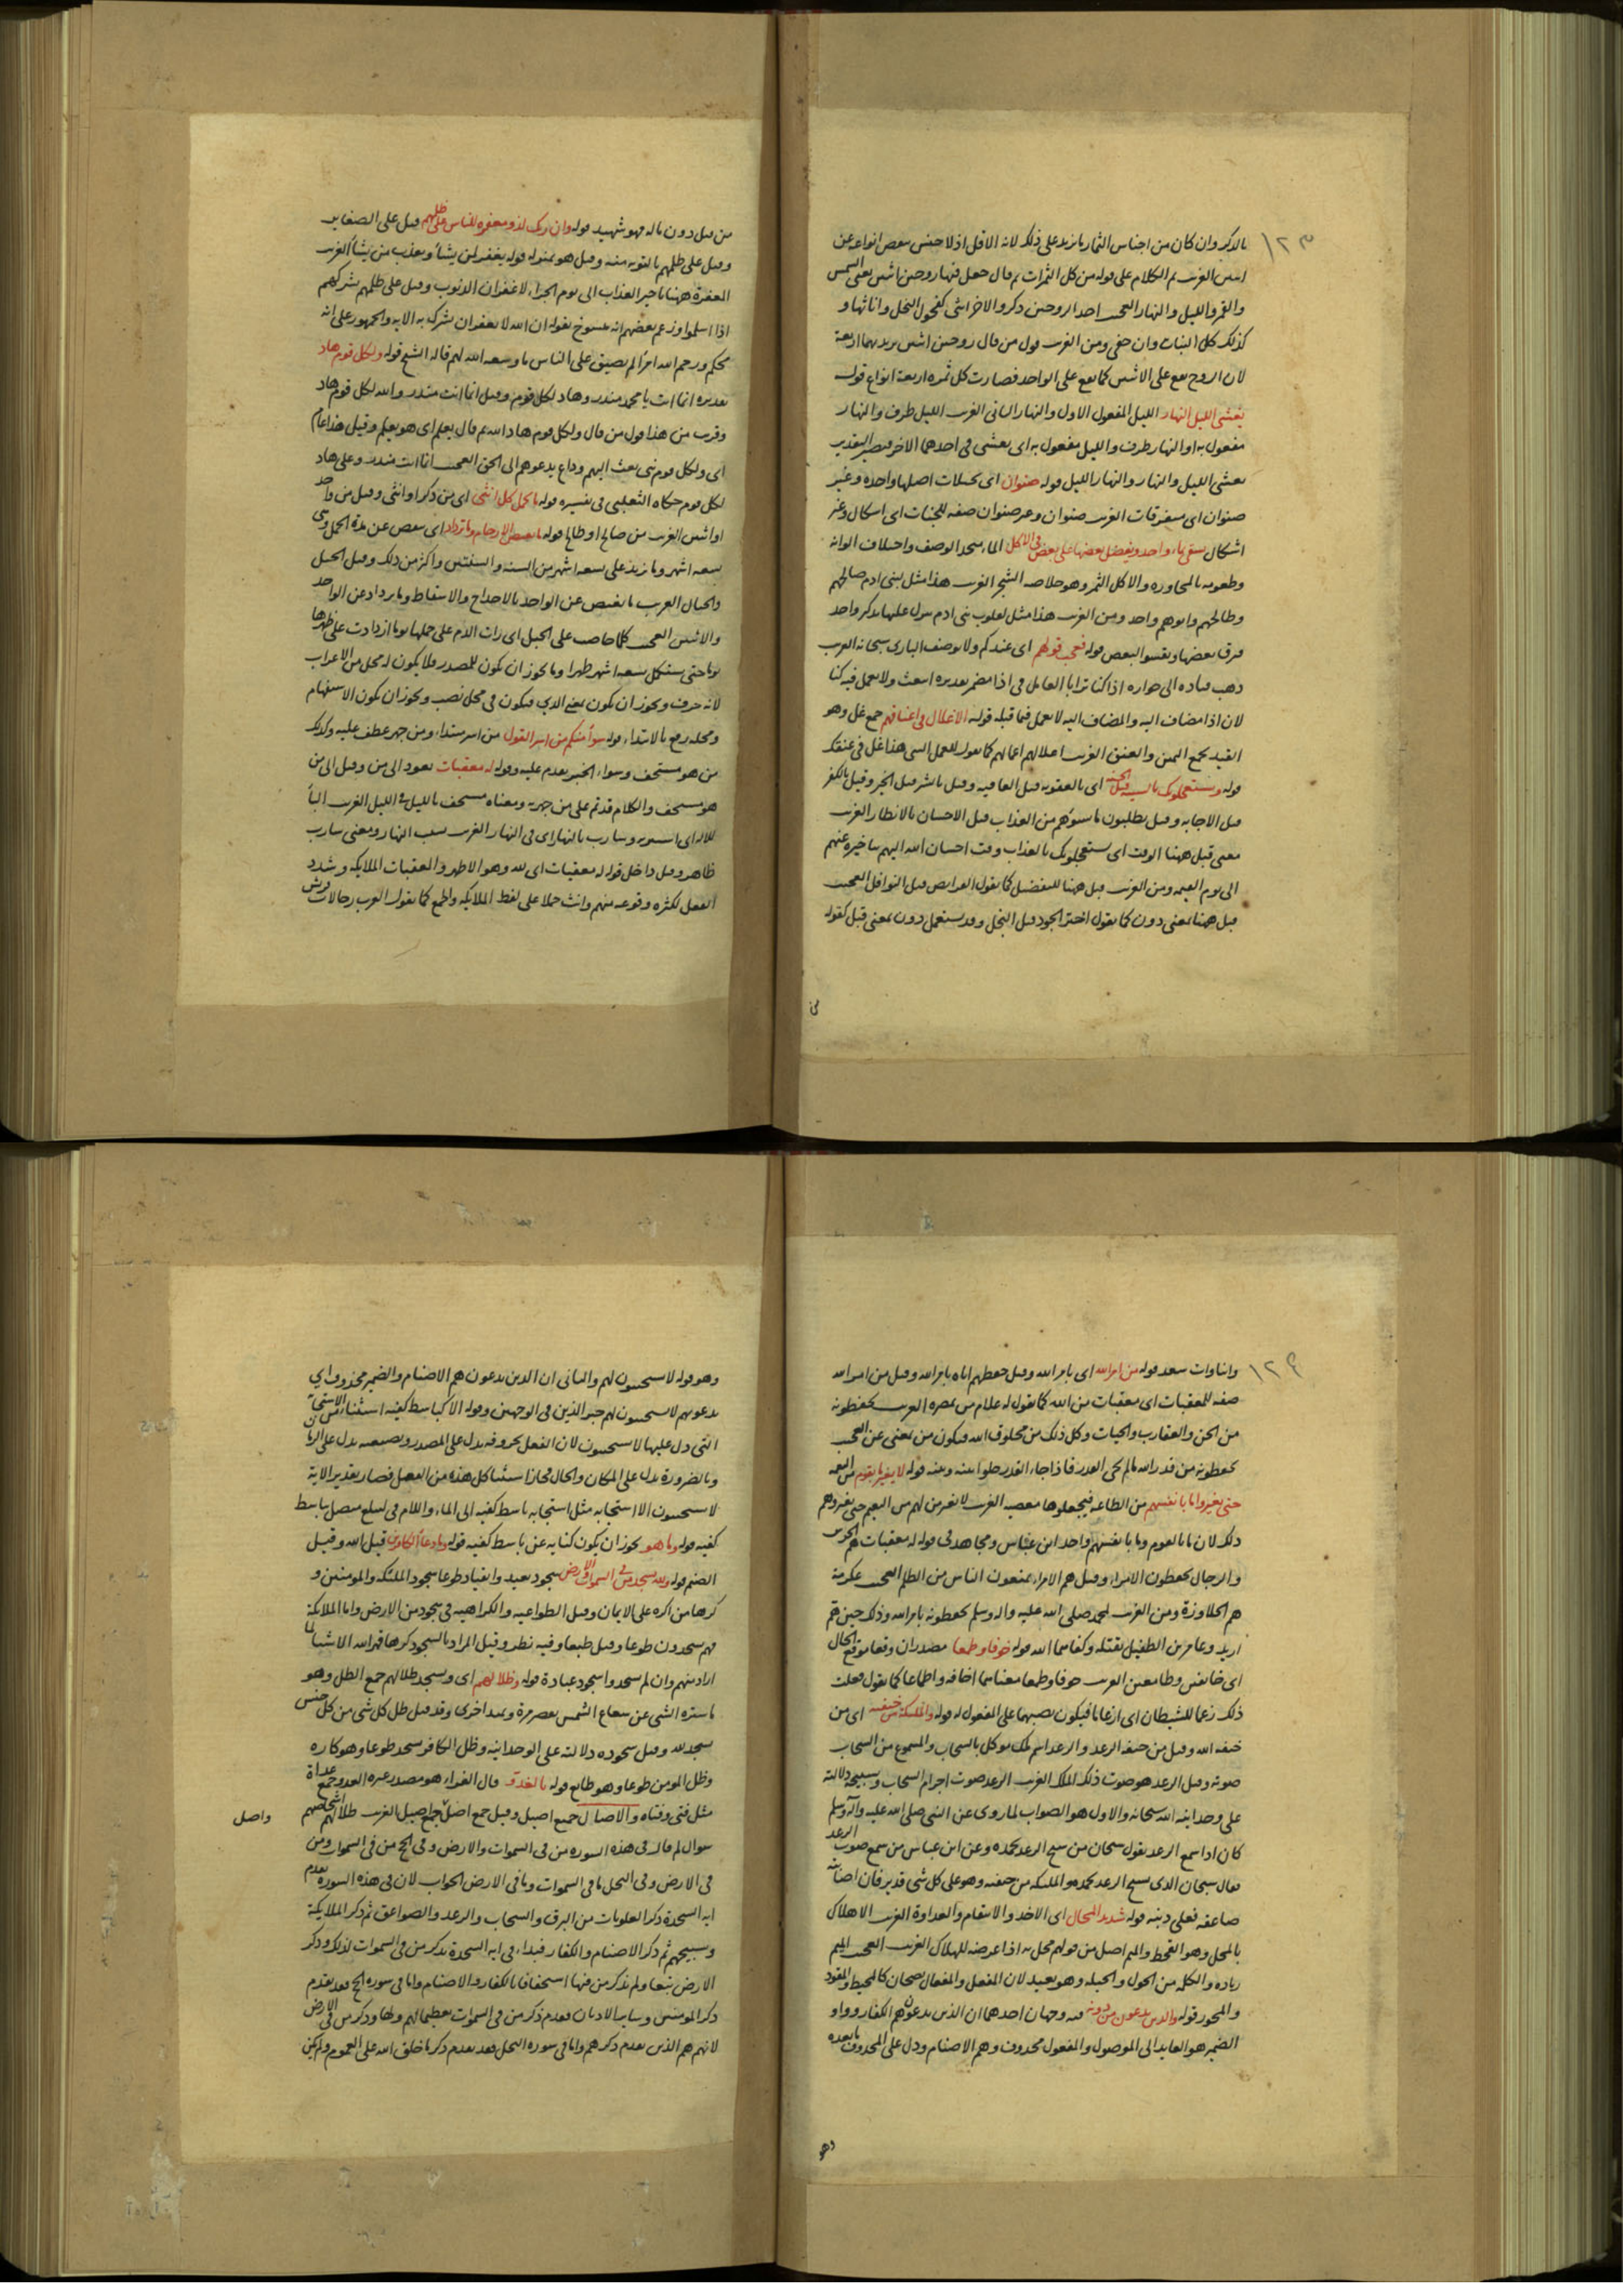 ١٢٣
بالذكر وان كان من اجناس الثمار ما زيد على ذلك لانه الاقل اذ لا جنس سعص انواعه عن
اثنين الغريب تم الكلام على قوله من كل الثمرات ثم قال جعل فيها زوجين اثنين يعنى الشمس
والقمر والليل والنهار العجيب احد الزوجين ذكر والاخر انثى كفحول النخل واناثها و
كذلك كل النبات وان خفى ومن الغريب قول من قال زوجين اثنين يريد بهما اربعة
لان الزوج يقع على الاثنين كما يقع على الواحد فصارت كل ثمرة اربعة انواع قوله
يغشى الليل النهار الليل المفعول الاول والنهار الثانى الغريب الليل ظرف والنهار
مفعول به او النهار ظرف والليل مفعول به اى يغشى فى احدهما الاخر فيصير التقدير
يغشى الليل والنهار والنهار الليل قوله صنوان اى نخلات اصلها واحدة وغير
صنوان اى متفرقات الغريب صنوان وغير صنوان صفة للجنات اى اشكال وغير
اشكال يسقى بماء واحد ونفضل بعضها على بعض فى الاكل الماء متحد الوصف واختلاف الوانه
وطعومه بالمجاورة والاكل الثمر وهو خلاصة الشجر الغريب هذا مثل لبنى ادم صالحهم
وطالحهم وابوهم واحد ومن الغريب هذا مثل لقلوب بنى ادم ينزل عليها ذكر واحد
فرق بعضها ويقسو البعض قوله فعجب قولهم اى عندكم ولا يوصف البارى سبحانه الغريب
ذهب قتادة الى جوازه اذا كنا ترابا العامل فى اذا مضمر تقديره انبعث ولا يعمل فيه كنا
لان اذا مضاف اليه والمضاف اليه لا يعمل فيما قبله قوله الاغلال فى اعناقهم جمع غل وهو
القيد يجمع اليمين والعنق الغريب اغلالهم اعمالهم كما تقول للعمل السىء هذا غل فى عنقك
قوله ويستعجلونك بالسيئة قبل الحسنة اى بالعقوبة قبل العافية وقيل بالشر قبل الخير وقيل بالكفر
قبل الاجابة وقيل يطلبون ما يسوءهم من العذاب قبل الاحسان بالانظار الغريب
معنى قبل ههنا الوقت اى يستعجلونك بالعذاب وقت احسان الله اليهم بتأخيره عنهم
الى يوم القيمة ومن الغريب قبل ههنا للتفضيل كما تقول الفرائض قبل النوافل العجيب
قبل ههنا بمعنى دون كما تقول اختر الجود قبل البخل وقد يستعمل دون بمعنى قبل كقوله
من قتل دون ماله فهو شهيد قوله وان ربك لذو مغفرة للناس على ظلمهم قيل على الصغاير
وقيل على ظلمهم بالتوبة منه وقيل هو بمنزلة قوله يغفر لمن يشأ ويعذب من يشأ الغريب
المغفرة ههنا تاخير العذاب الى يوم الجزاء لا غفران الذنوب وقيل على ظلمهم بشركهم
اذا اسلموا وزعم بعضهم انه منسوخ بقوله ان الله لا يغفر ان يشرك به الاية والجمهور على انه
محكم ورحم الله امرأ لم يضيق على الناس ما وسعه الله لهم قاله الشيخ قوله ولكل قوم هاد
تقديره انما انت يا محمد منذر وهاد لكل قوم وقيل انما انت منذر والله لكل قوم هاد
وقرب من هذا قول من قال ولكل قوم هاد الله ثم قال يعلم اى هو يعلم وقيل هذا عام
اى ولكل قوم نبى بعث اليهم وداع يدعوهم الى الحق العجيب انما انت منذر وعلى هاد
لكل قوم حكاه الثعلبى فى تفسيره قوله ما تحمل كل انثى اى من ذكر او انثى وقيل من واحد
او اثنين الغريب من صالح او طالح قوله ما تغيض الارحام وما تزداد اى ينقص عن مدة الحمل وهى
تسعة اشهر وما يزيد على تسعة اشهر من السنة والسنتين واكثر من ذلك وقيل الحبل
والحبال الغريب ما تغيض عن الواحد بالاخداج والاسقاط وما يزداد عن الواحد
والاثنين العجيب كلما حاضت على الحبل اى رات الدم على حملها يوما ازدادت على طهرها
يوما حتى يستكمل تسعة اشهر طهرا وما يجوز ان يكون للمصدر فلا يكون له محل من الاعراب
لانه حرف ويجوز ان يكون بمعنى الذى فيكون فى محل نصب ويجوز ان يكون الاستفهام
ومحله رفع بالابتداء قوله سوأ منكم من اسر القول من اسر مبتداء ومن جهر عطف عليه وكذلك
من هو مستخف وسواء الخبر تقدم عليه وقوله له معقبات يعود الى من وقيل الى من
هو مستخف والكلام قد تم على من جهر به ومعناه مستخف بالليل فى الليل الغريب البأ
للالة اى استتر به وسارب بالنهار اى فى النهار الغريب بسبب النهار ومعنى سارب
ظاهر وقيل داخل قوله له معقبات اى لله وهو الاظهر والمعقبات الملايكة وشدد
الفعل لكثرة وقوعه منهم وانث حملا على لفظ الملايكة والجمع كما تقول العرب رجالات قريش
١٢٤
وانثاوات سعد قوله من امر الله اى بامر الله وقيل حفظهم اياه بامر الله وقيل من امر الله
صفة للمعقبات اى معقبات من الله كما تقول له غلام من بصرة الغريب يحفظونه
من الجن والعقارب والحيات وكل ذلك من مخلوق الله فيكون من بمعنى عن العجيب
يحفظونه من قدر الله ما لم يجئ القدر فاذا جاء القدر خلوا بينه وبينه قوله لا يغير ما بقوم من النعمة
حتى يغيروا ما بانفسهم من الطاعة فيجعلوها معصية الغريب لا تغير من لهم من النعيم حتى يغيروهم
ذلك لان ما بالقوم وما بانفسهم واحد ابن عباس ومجاهد فى قوله له معقبات هم الحرس
والرجال يحفظون الامراء وقيل هم الامراء يمنعون الناس من الظلم العجيب عكرمة
هم الجلاوزة ومن الغريب لمحمد صلى الله عليه واله وسلم يحفظونه بامر الله وذلك حين هم
اربد وعامر بن الطفيل بقتله وكفاهما الله قوله خوفا وطمعا مصدران وقعا موقع الحال
اى خائفين وطامعين الغريب خوفا وطمعا معناهما اخافة واطماعا كما تقول فعلت
ذلك رغما للشيطان اى ارغاما فيكون نصبهما على المفعول له قوله والملئكة من خيفته اى من
خيفة الله وقيل من خيفة الرعد والرعد اسم ملك موكل بالسحاب والمسموع من السحاب
صوته وقيل الرعد هو صوت ذلك الملك الغريب الرعد صوت اجرام السحاب وتسبيحه دلالته
على وحدانية الله سبحانه والاول هو الصواب لما روى عن النبى صلى الله عليه وآله وسلم
كان اذا سمع الرعد يقول سبحان من سبح الرعد بحمده وعن ابن عباس من سمع صوت الرعد
فقال سبحان الذى يسبح الرعد بحمده والملئكة من خيفته وهو على كل شى قدير فان اصابته
صاعقة فعلى ديته قوله شديد المحال اى الاخذ والانتقام والعداوة الغريب الاهلاك
بالمحل وهو القحط والميم اصل من قولهم محل به اذا عرضه للهلاك الغريب العجيب الميم
زيادة والكلمة من الحول والحيلة وهو بعيد لان المفعل والمفعال يصحان كالمخيط والمقود
والمحور قوله والذين يدعون من دونه فيه وجهان احدهما ان الذين يدعون هم الكفار وواو
الضمير هو العايد الى الموصول والمفعول محذوف وهم الاصنام ودل على المحذوف ما بعده
وهو
وهو قوله لا يستجيبون لهم والثانى ان الذين يدعون هم الاصنام والضمير محذوف اي
يدعونهم لا يستجيبون لهم خبر الذين فى الوجهين وقوله الا كباسط كفيه استثناء من الاستجابة
التى دل عليها لا يستجيبون لان الفعل بحروفه يدل على المصدر وبصيغته يدل على الزمان
وبالضرورة يدل على المكان والحال فجاز استثنا كل هذه من الفعل فصار تقدير الاية
لا يستجيبون الا استجابة مثل استجابة باسط كفيه الى الماء واللام فى ليبلغ متصل بباسط
كفيه قوله وما هو يجوز ان يكون كناية عن باسط كفيه قوله وما دعأ الكافرين قيل الله وقيل
الصنم قوله ولله يسجد من فى السموات والارض سجود تعبد وانقياد طوعا سجود الملئكة والمومنين و
كرها من اكره على الايمان وقيل الطواعية والكراهية فى سجود من الارض واما الملايكة
فهم يسجدون طوعا وقيل طبعا وفيه نظر وقيل المراد بالسجود كرها قهر الله الاشيا لما
اراد منهم وان لم يسجدوا سجود عبادة قوله وظلالهم اى ويسجد ظلالهم جمع الظل وهو
ما ستره الشى عن شعاع الشمس يقصر مرة ويمتد اخرى وقد قيل ظل كل شى من كل جنس
يسجد لله وقيل سجوده دلالته على الوحدانية وظل الكافر يسجد طوعا وهو كاره
وظل المومن طوعا وهو طايع قوله بالغدو قال الفراء هو مصدر غيره الغدو جمع غداة
مثل فتى وفتاه والاصال جمع اصيل وقيل جمع اصل جمع اصيل الغريب ظلالهم اشخاصهم
واصل
سوال لم قال فى هذه السورة من فى السموات والارض وفى الحج من فى السموات ومن
فى الارض وفى النحل ما فى السموات وما فى الارض الجواب لان فى هذه السورة تقدم
اية السجدة ذكر العلويات من البرق والسحاب والرعد والصواعق ثم ذكر الملايكة
وتسبيحهم ثم ذكر الاصنام والكفار فبداء فى اية السجدة بذكر من فى السموات لذلك وذكر
الارض تبعا ولم يذكر من فيها استخفافا بالكفار والاصنام واما فى سورة الحج فقد تقدم
ذكر المومنين وساير الاديان فقدم ذكر من فى السموات تعظيما لهم ولها وذكر من فى الارض
لانهم هم الذين تقدم ذكرهم واما فى سورة النحل فقد تقدم ذكر ما خلق الله على العموم ولم يكن